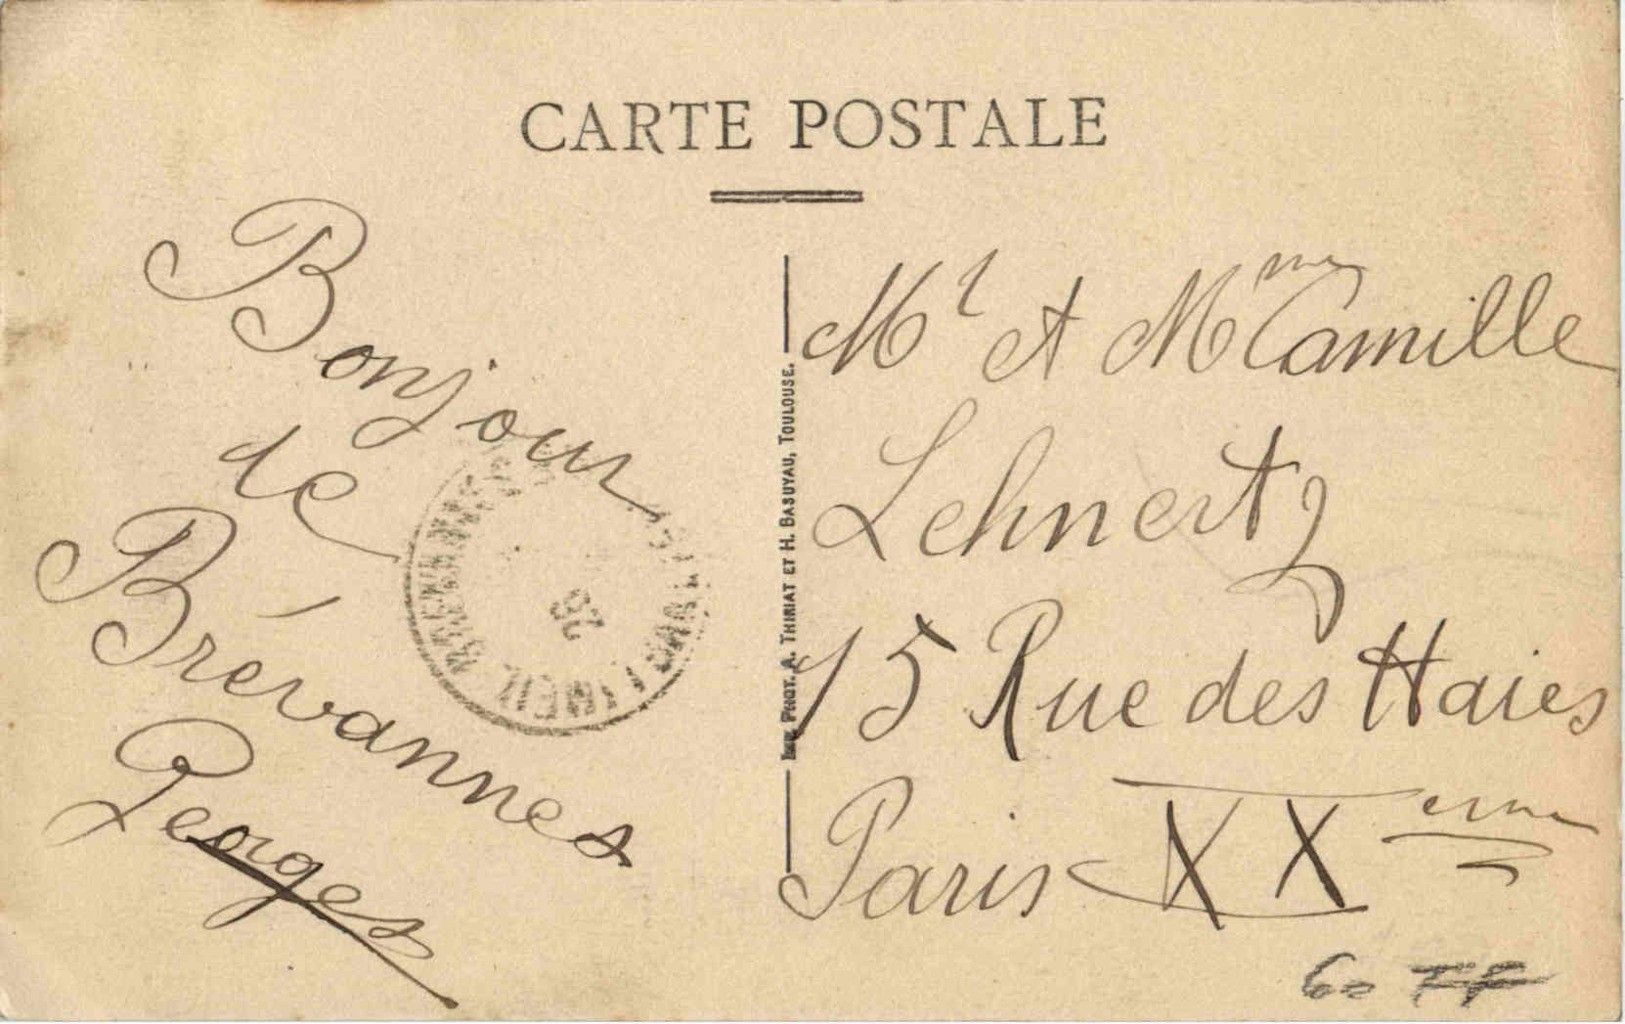 CARTE POSTALE
Bonjour
de
Brévannes
Georges
Imp. Pinot. A. Thiriat et H. Basuyau, Toulouse.
Mr et Mme Camille
Lehnertz
15 Rue des Haies
Paris XXeme
60 FF
26